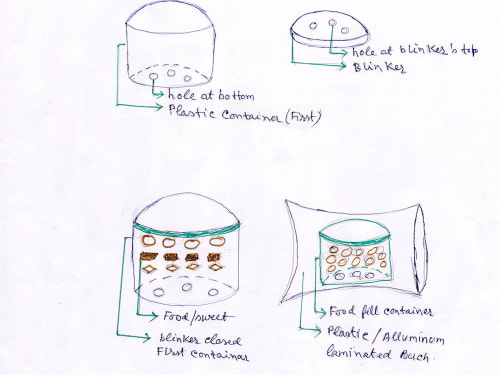 hole at bottom
Plastic Container (First)
hole at blinker's top
Blinker
Food/sweet
blinker closed
First container
Food fill container
Plastic / Alluminum
laminated Pouch.